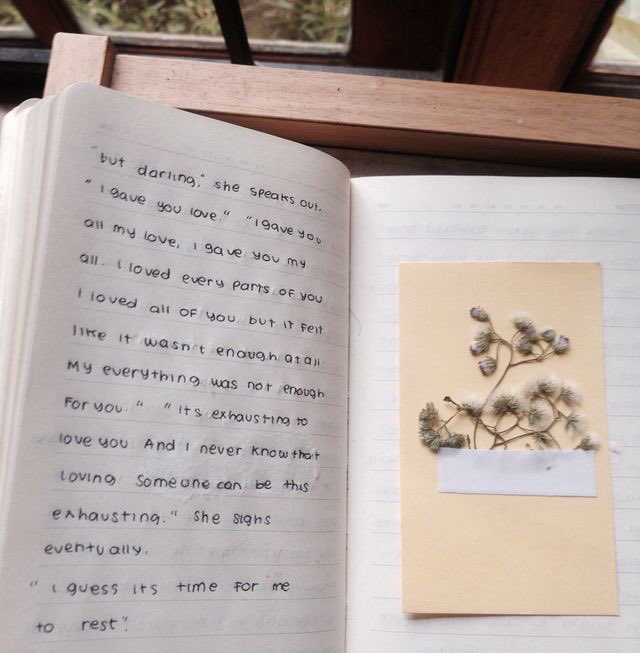 "but darling," she speaks out.
" I gave you love." "I gave you
all my love, I gave you my
all. I loved every parts of you
I loved all of you. but it felt
like it wasn't enough at all
My everything was not enough
For you. " " Its exhausting to
love you. And I never know that
loving someone can be this
exhausting." She sighs
eventually.
" I guess its time for me
to rest".